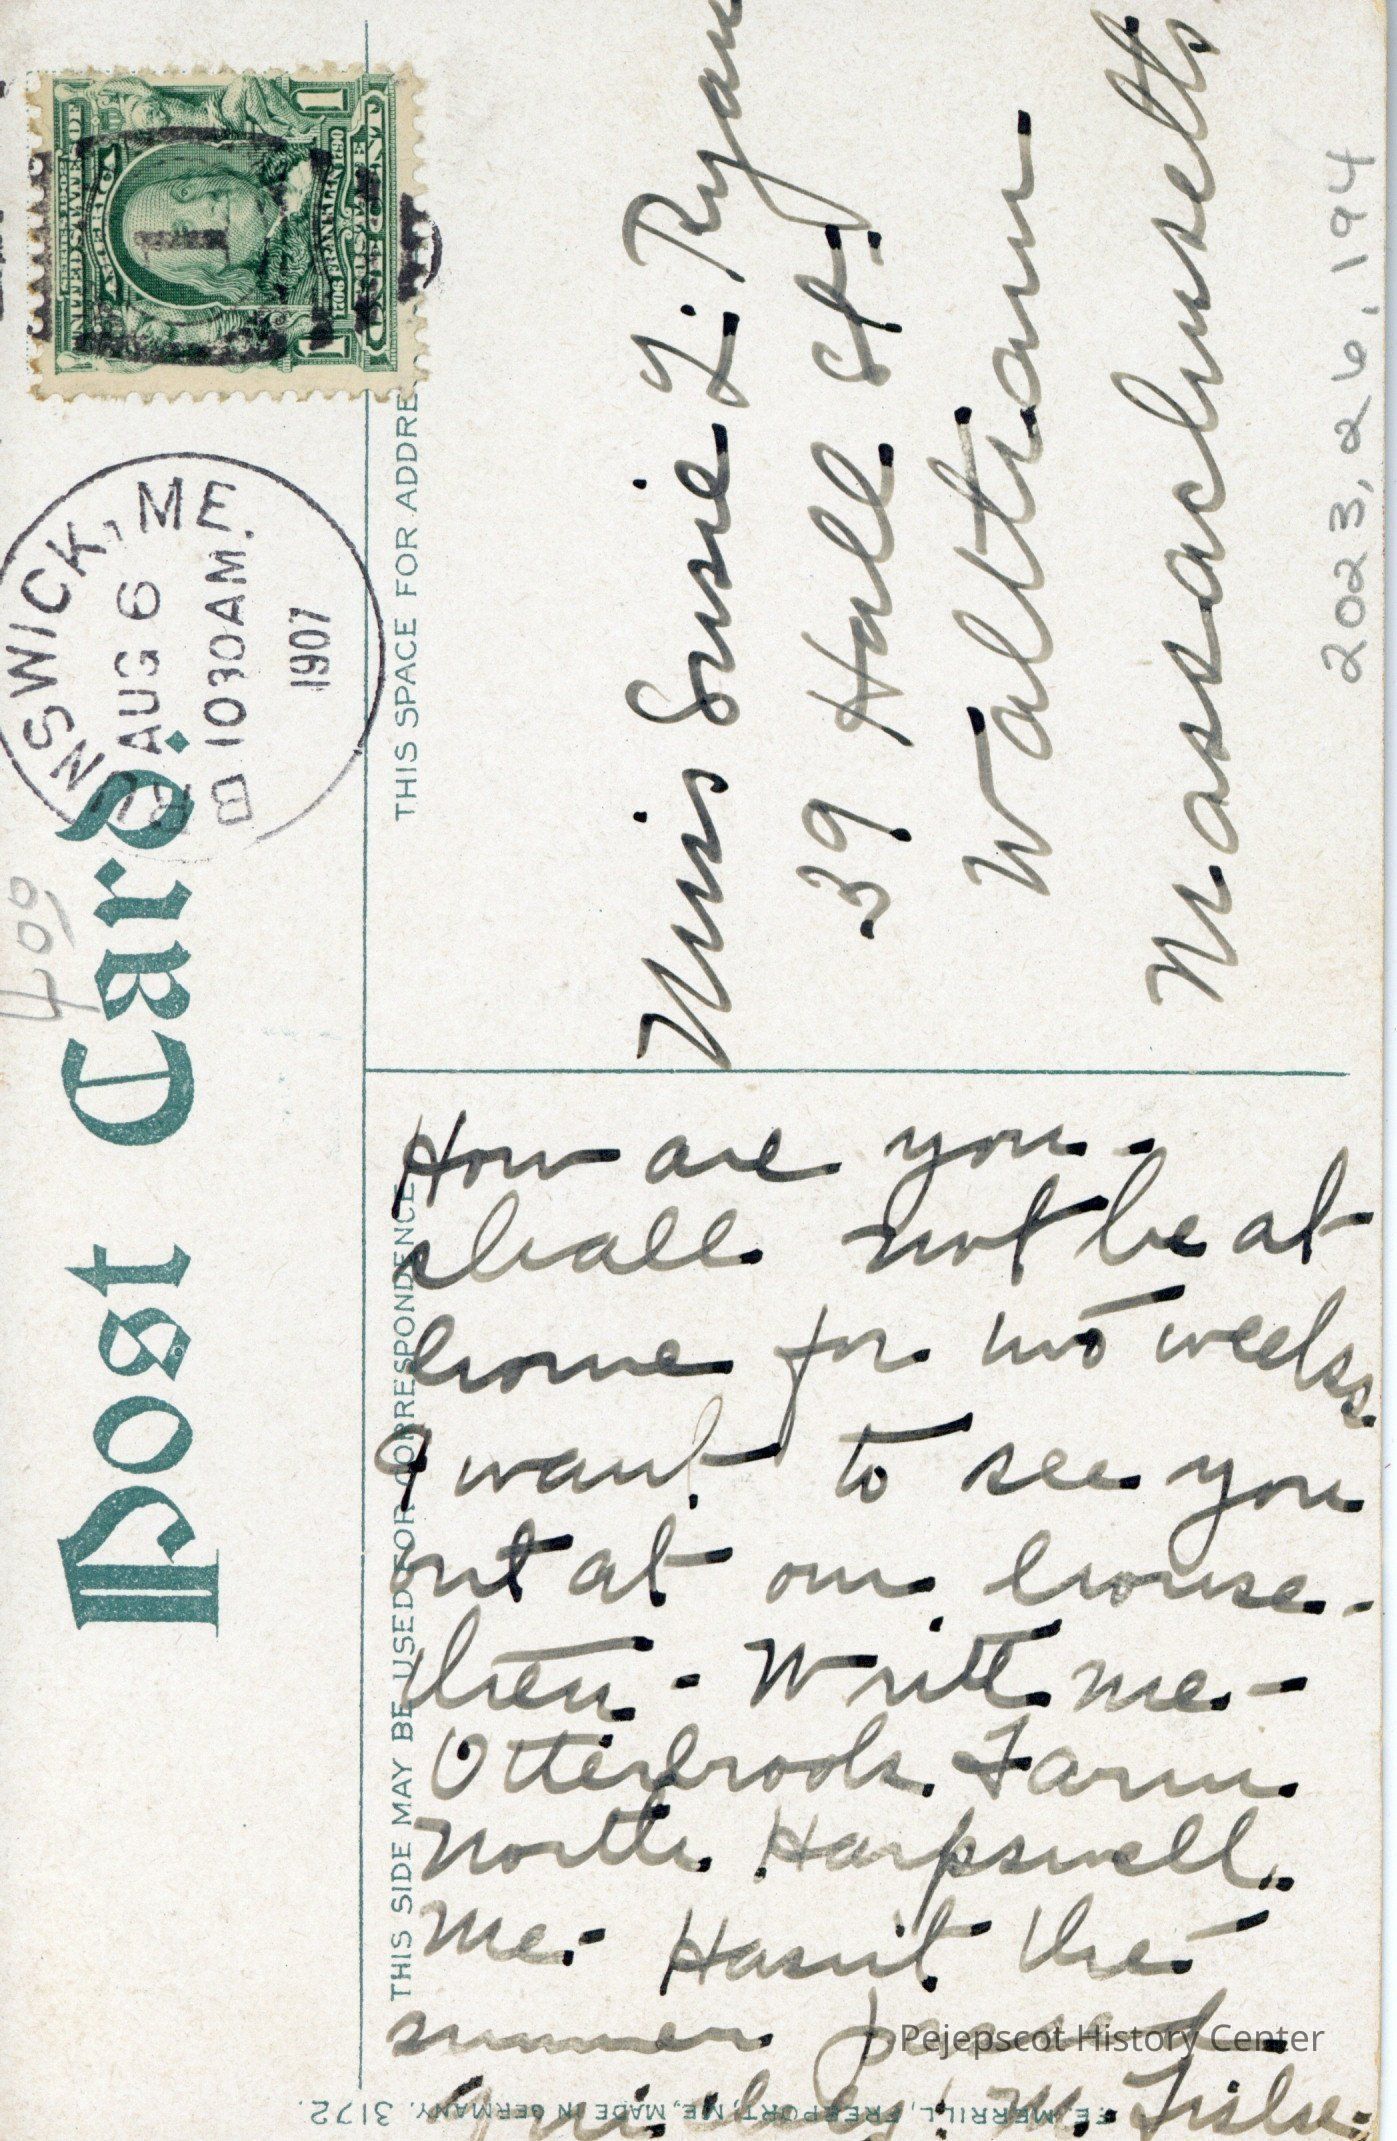 Post Card.
THIS SPACE FOR ADDRE
THIS SIDE MAY BE USED FOR CORRESPONDENCE
NSWICK, ME.
AUG 6
10 30 AM.
1907
B
UNITED STATES OF
AMERICA
1706 FRANKLIN 1790
ONE CENT
1
1
1
400
Miss Susie L. Ryan
39 Hall St.
Waltham
Massachusetts
2023.26.194
How are you.
shall not be at
home for two weeks
I want to see you
out at our house.
then - Write me -
Otterbrook Farm
North Harpswell.
Me. Hasn't the
summer passed
quickly. M. Fiske.
F.E. MERRILL, FREEPORT, ME, MADE IN GERMANY. 3172.
Pejepscot History Center